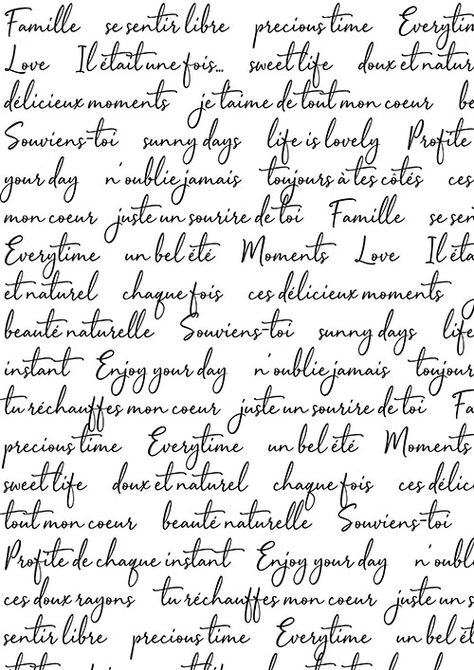 Famille se sentir libre precious time Everytim
Love Il était une fois... sweet life doux et natur
délicieux moments je t'aime de tout mon coeur be
Souviens-toi sunny days life is lovely Profite
your day n'oublie jamais toujours à tes côtés ces
mon coeur juste un sourire de toi Famille se sen
Everytime un bel été Moments Love Il éta
et naturel chaque fois ces délicieux moments
beauté naturelle Souviens-toi sunny days life
instant Enjoy your day n'oublie jamais toujour
tu réchauffes mon coeur juste un sourire de toi Fa
precious time Everytime un bel été Moments
sweet life doux et naturel chaque fois ces délic
tout mon coeur beauté naturelle Souviens-toi
Profite de chaque instant Enjoy your day n'oubl
ces doux rayons tu réchauffes mon coeur juste un s
sentir libre precious time Everytime un bel ét